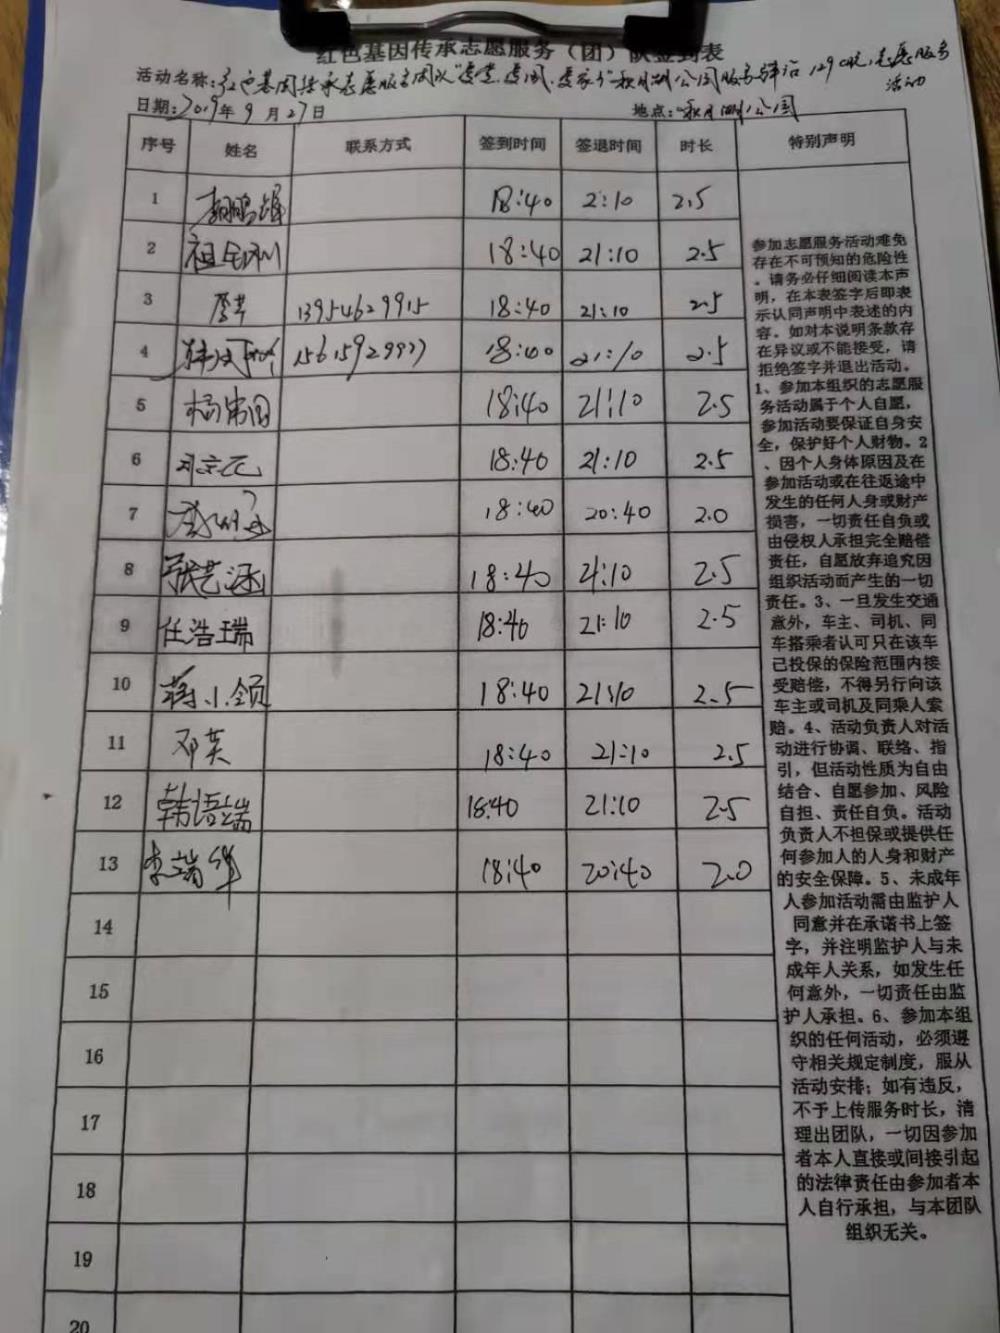 红色基因传承志愿服务（团）队签到表
活动名称：红色基因传承志愿服务团队"爱党、爱国、爱家乡"秋月湖公园服务驿站 志愿服务
活动
日期：2019年9月27日 地点：秋月湖公园
序号 姓名 联系方式 签到时间 签退时间 时长 特别声明
1 18:40 2:10 2.5
2 18:40 21:10 2.5
3 13954629915 18:40 21:10 2.5
4 15615929977 18:40 21:10 2.5
5 18:40 21:10 2.5
6 18:40 21:10 2.5
7 18:40 20:40 2.0
8 张艺涵 18:40 21:10 2.5
9 任浩瑞 18:40 21:10 2.5
10 蒋小领 18:40 21:10 2.5
11 邓英 18:40 21:10 2.5
12 韩语端 18:40 21:10 2.5
13 李瑞华 18:40 20:40 2.0
14
15
16
17
18
19
20
参加志愿服务活动难免
存在不可预知的危险性
。请务必仔细阅读本声
明，在本表签字后即表
示认同声明中表述的内
容。如对本说明条款存
在异议或不能接受，请
拒绝签字并退出活动。
1、参加本组织的志愿服
务活动属于个人自愿，
参加活动要保证自身安
全，保护好个人财物。2
、因个人身体原因及在
参加活动或在往返途中
发生的任何人身或财产
损害，一切责任自负或
由侵权人承担完全赔偿
责任，自愿放弃追究因
组织活动而产生的一切
责任。3、一旦发生交通
意外，车主、司机、同
车搭乘者认可只在该车
已投保的保险范围内接
受赔偿，不得另行向该
车主或司机及同乘人索
赔。4、活动负责人对活
动进行协调、联络、指
引，但活动性质为自由
结合、自愿参加、风险
自担、责任自负。活动
负责人不担保或提供任
何参加人的人身和财产
的安全保障。5、未成年
人参加活动需由监护人
同意并在承诺书上签
字，并注明监护人与未
成年人关系，如发生任
何意外，一切责任由监
护人承担。6、参加本组
织的任何活动，必须遵
守相关规定制度，服从
活动安排；如有违反，
不予上传服务时长，清
理出团队，一切因参加
者本人直接或间接引起
的法律责任由参加者本
人自行承担，与本团队
组织无关。